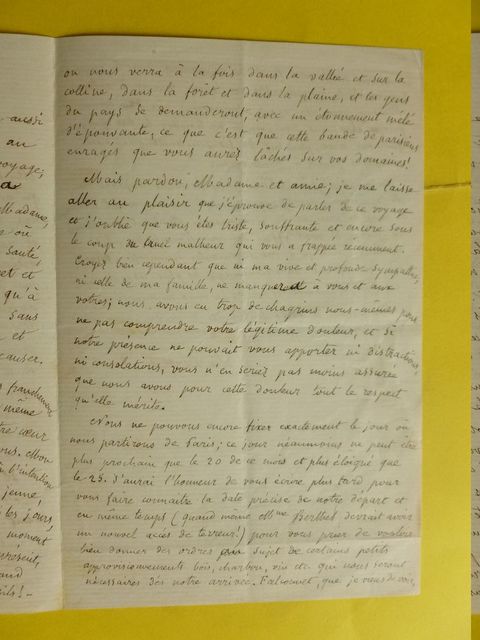 aussi
au
voyage;
Madame,
où
santé,
et et
qu'à
sans
et
causer.
franchement
même
tre cœur
ous. Mon
l'intention
jeune,
les jours,
moment
présent,
and
ils! –
on nous verra à la fois dans la vallée et sur la
colline, dans la forêt et dans la plaine, et les gens
du pays se demanderont, avec un étonnement mêlé
d'épouvante, ce que c'est que cette bande de parisiens
enragés que vous aurez lâchés sur vos domaines!
Mais pardon, Madame et amie; je me laisse
aller au plaisir que j'éprouve de parler de ce voyage
et j'oublie que vous êtes triste, souffrante et encore sous
le coup du cruel malheur qui vous a frappée récemment.
Croyez bien cependant que ni ma vive et profonde sympathie,
ni celle de ma famille, ne manquera à vous et aux
vôtres; nous avons eu trop de chagrins nous-mêmes pour
ne pas comprendre votre légitime douleur, et si
notre présence ne pouvait vous apporter ni distractions,
ni consolations, vous n'en seriez pas moins assurée
que nous avons pour cette douleur tout le respect
qu'elle mérite.
Nous ne pouvons encore fixer exactement le jour où
nous partirons de Paris; ce jour néanmoins ne peut être
plus prochain que le 20 de ce mois et plus éloigné que
le 25. J'aurai l'honneur de vous écrire plus tard pour
vous faire connaître la date précise de notre départ et
en même temps (quand même Mme Berthet devrait avoir
un nouvel accès de terreur!) pour vous prier de vouloir
bien donner des ordres au sujet de certains petits
approvisionnements bois, charbon, vin etc. qui nous seront
nécessaires dès notre arrivée. que je viens de voir,